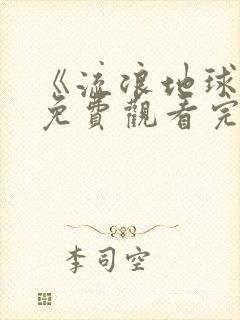 《流浪地球
免費觀看完
李司空